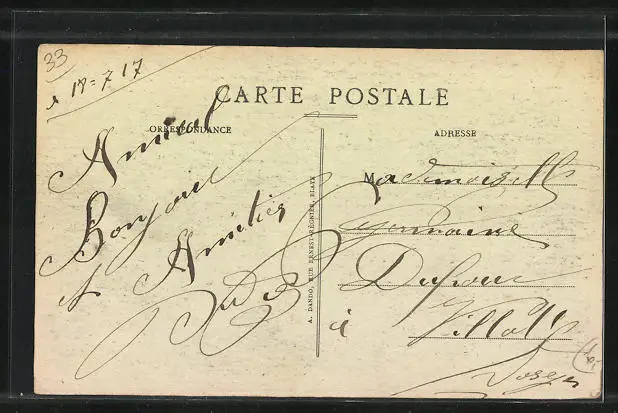 33
18=7 17
CARTE POSTALE
CORRESPONDANCE
ADRESSE
Amical
Bonjour
et Amitiés
A. DANDO, RUE ERNEST-REGNIER, BLAYE
Mademoiselle
Germaine
Dufour
à
Vosges